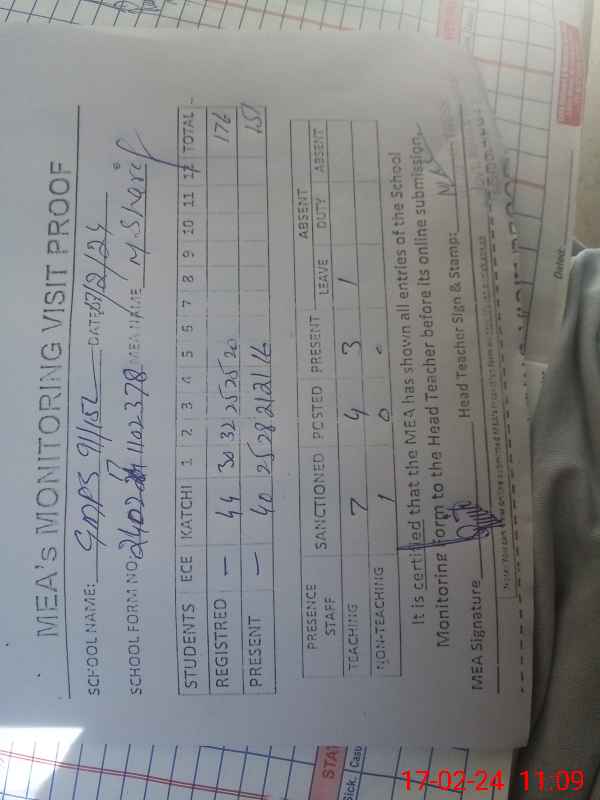 MEA's MONITORING VISIT PROOF
SCHOOL NAME: GMPS 91/15L DATE: 07/2/24
SCHOOL FORM NO: MEA NAME: M. Sharif
STUDENTS ECE KATCHI 1 2 3 4 5 6 7 8 9 10 11 12 TOTAL
REGISTRED — 44 30 32 25 25 20 176
PRESENT — 40 25 28 21 21 16 151
PRESENCE STAFF SANCTIONED POSTED PRESENT ABSENT
LEAVE DUTY ABSENT
TEACHING 7 4 3 1
NON-TEACHING 1 0 0
It is certified that the MEA has shown all entries of the School
Monitoring Form to the Head Teacher before its online submission.
MEA Signature Head Teacher Sign & Stamp:
Note: You can
STAT
Sick. Casu
17-02-24 11:09